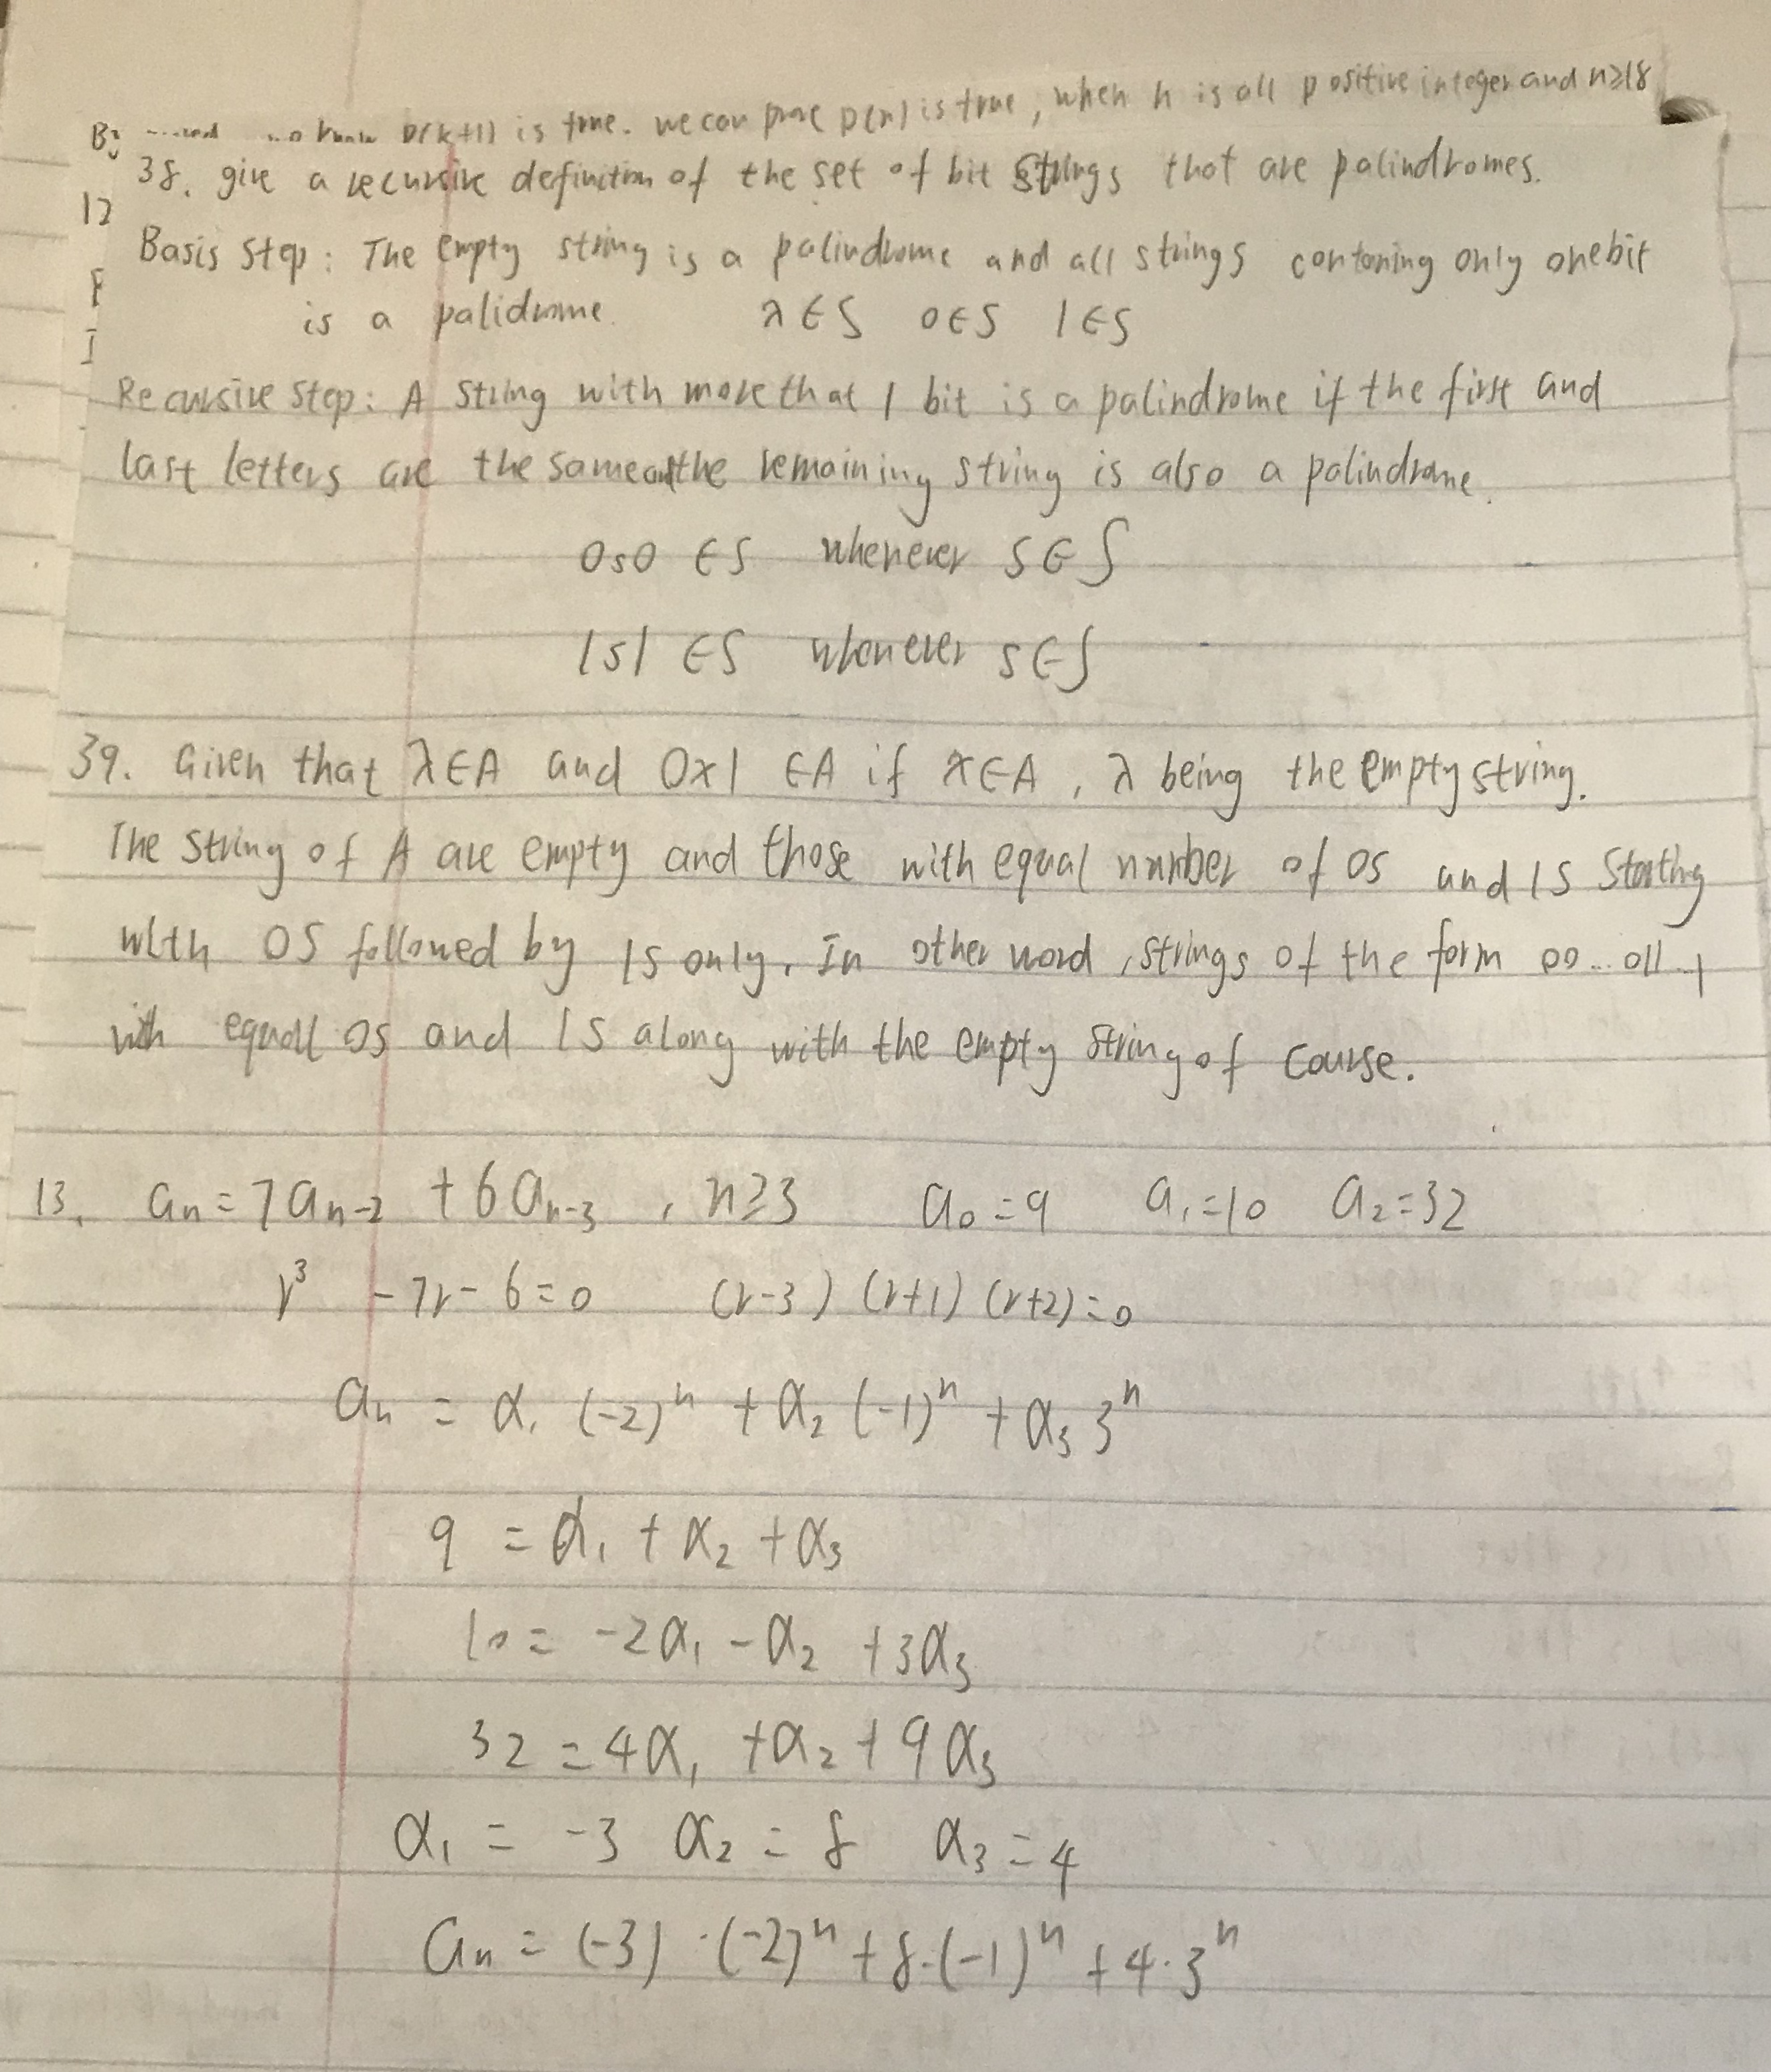 By know p(k+1) is true. we can prove p(n) is true, when n is all positive integer and n≥18
38. give a recursive definition of the set of bit strings that are palindromes.
12
Basis Step: The empty string is a palindrome and all strings containing only one bit
is a palidrome. λ∈S 0∈S 1∈S
Recursive Step: A string with more that 1 bit is a palindrome if the first and
last letters are the same and the remaining string is also a palindrome.
0s0 ∈S whenever s∈S
1s1 ∈S whenever s∈S
39. Given that λ∈A and 0x1 ∈A if x∈A, λ being the empty string.
The string of A are empty and those with equal number of 0s and 1s starting
with 0s followed by 1s only. In other word, strings of the form 00...011...1
with equall 0s and 1s along with the empty string of course.
13. aₙ = 7aₙ₋₂ + 6aₙ₋₃, n≥3 a₀=9 a₁=10 a₂=32
r³ - 7r - 6 = 0 (r-3) (r+1) (r+2) = 0
aₙ = α₁ (-2)ⁿ + α₂ (-1)ⁿ + α₃ 3ⁿ
9 = α₁ + α₂ + α₃
10 = -2α₁ - α₂ + 3α₃
32 = 4α₁ + α₂ + 9α₃
α₁ = -3 α₂ = 8 α₃ = 4
aₙ = (-3)·(-2)ⁿ + 8·(-1)ⁿ + 4·3ⁿ